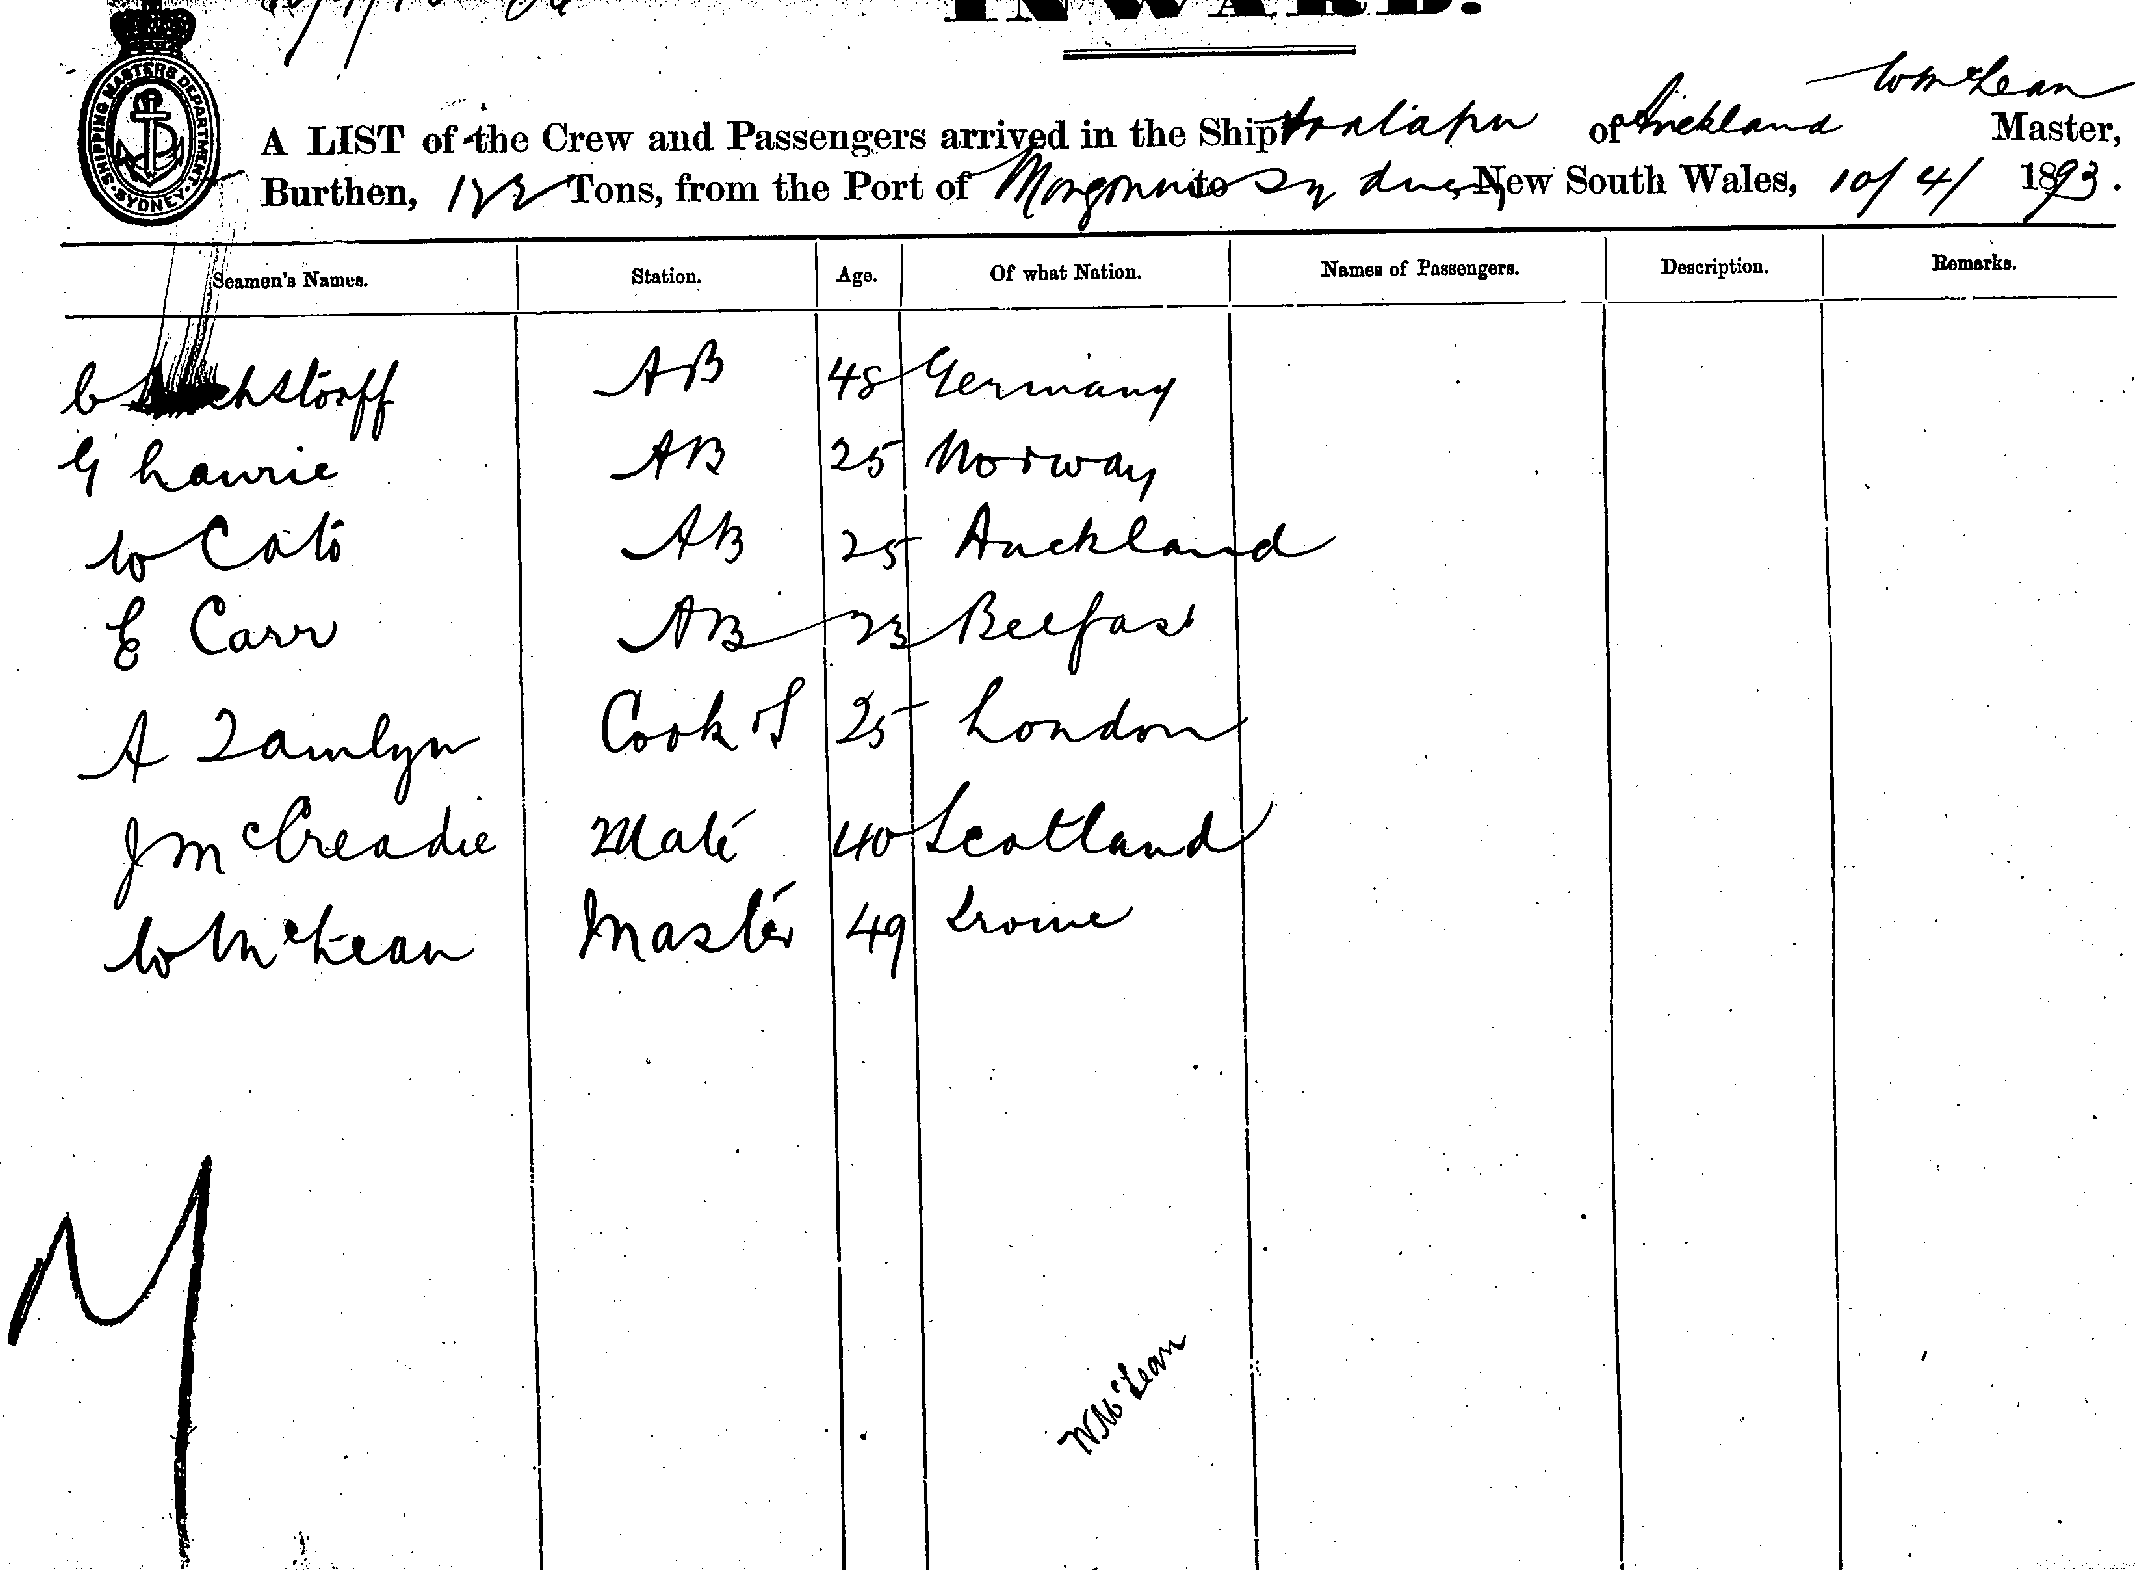 INWARD.
SHIPPING MASTERS DEPARTMENT SYDNEY
W McLean
A LIST of the Crew and Passengers arrived in the Ship of Auckland Master,
Burthen, Tons, from the Port of to Sydney New South Wales, 10/4/ 1893.
Seamen's Names. Station. Age. Of what Nation. Names of Passengers. Description. Remarks.
C AB 48 Germany
G Lawrie AB 25 Norway
W Cato AB 25 Auckland
E Carr AB 23 Belfast
A Tamlyn Cook & S 25 London
J McCreadie Mate 40 Scotland
W McLean Master 49
W McLean